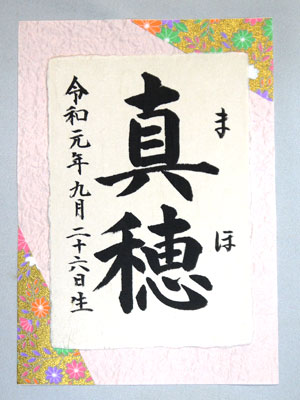 まほ
真穂
令和元年九月二十六日生